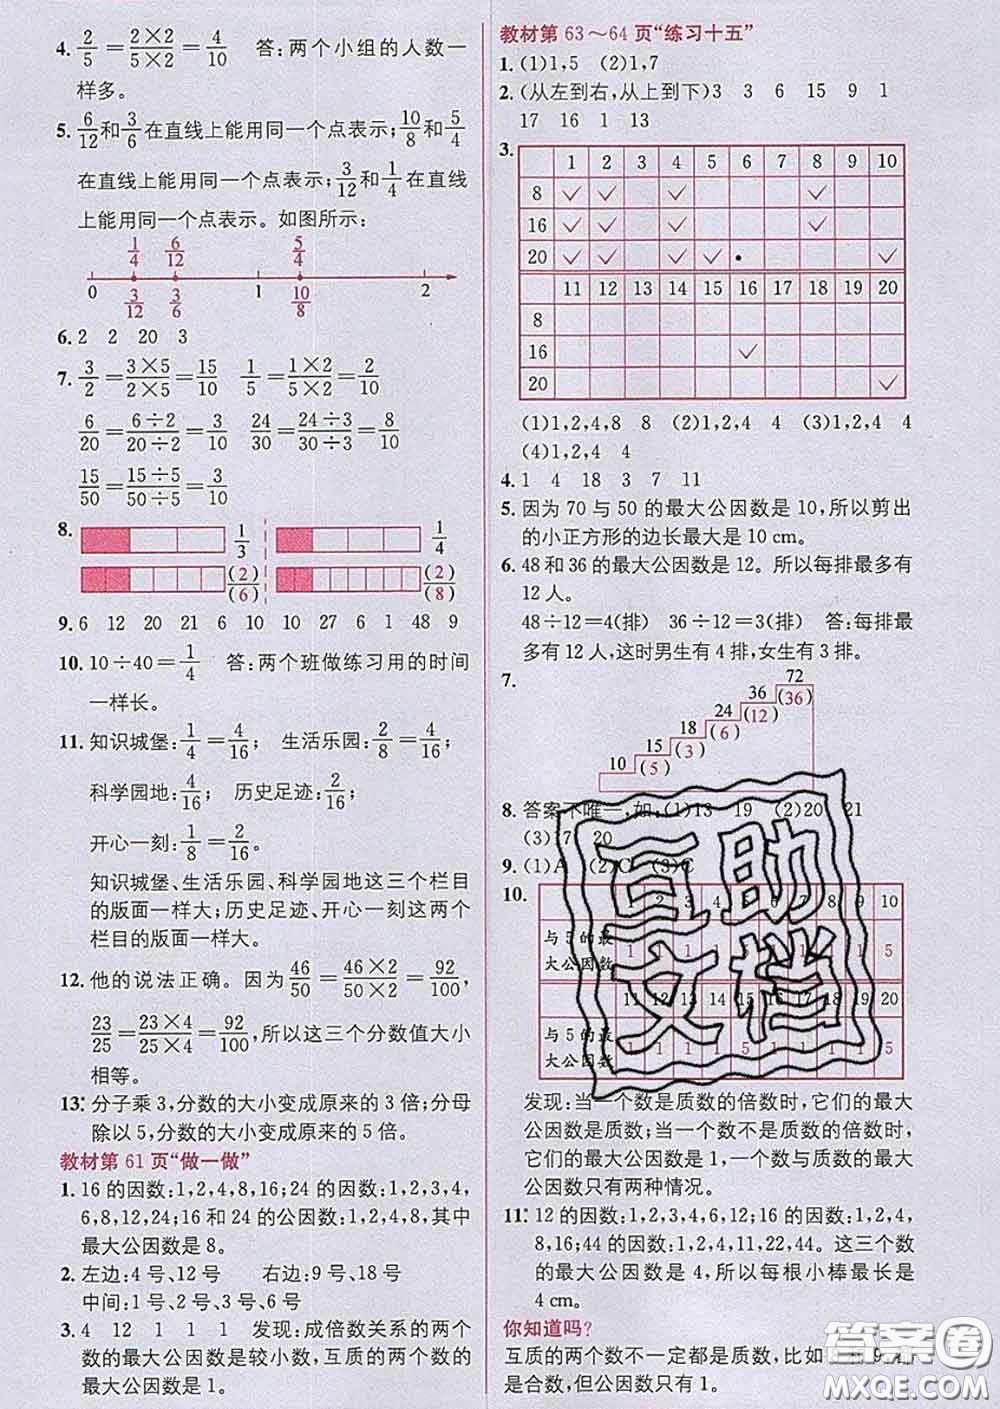 4. 2/5=2×2/5×2=4/10 答:两个小组的人数一
样多。
5. 6/12和3/6在直线上能用同一个点表示;10/8和5/4
在直线上能用同一个点表示;3/12和1/4在直线
上能用同一个点表示。如图所示:
1/4 6/12 5/4
0 1 2
3/12 3/6 10/8
6. 2 2 20 3
7. 3/2=3×5/2×5=15/10 1/5=1×2/5×2=2/10
6/20=6÷2/20÷2=3/10 24/30=24÷3/30÷3=8/10
15/50=15÷5/50÷5=3/10
8. 1/3 1/4
(2)/(6) (2)/(8)
9. 6 12 20 21 6 10 10 27 6 1 48 9
10. 10÷40=1/4 答:两个班做练习用的时间
一样长。
11. 知识城堡:1/4=4/16; 生活乐园:2/8=4/16;
科学园地:4/16 历史足迹:2/16
开心一刻:1/8=2/16。
知识城堡、生活乐园、科学园地这三个栏目
的版面一样大;历史足迹、开心一刻这两个
栏目的版面一样大。
12. 他的说法正确。因为46/50=46×2/50×2=92/100,
23/25=23×4/25×4=92/100,所以这三个分数值大小
相等。
13* 分子乘3,分数的大小变成原来的3倍;分母
除以5,分数的大小变成原来的5倍。
教材第61页“做一做”
1. 16的因数:1,2,4,8,16;24的因数:1,2,3,4,
6,8,12,24;16和24的公因数:1,2,4,8,其中
最大公因数是8。
2. 左边:4号、12号 右边:9号、18号
中间:1号、2号、3号、6号
3. 4 12 1 1 1 发现:成倍数关系的两个
数的最大公因数是较小数;互质的两个数的
最大公因数是1。
教材第63～64页“练习十五”
1. (1)1,5 (2)1,7
2. (从左到右,从上到下)3 3 6 15 9 1
17 16 1 13
3. 1 2 3 4 5 6 7 8 9 10
8 ✓ ✓ ✓ ✓
16 ✓ ✓ ✓ ✓
20 ✓ ✓ ✓ ✓ ✓
11 12 13 14 15 16 17 18 19 20
8
16 ✓
20 ✓
(1)1,2,4,8 8 (2)1,2,4 4 (3)1,2,4 4
(4)1,2,4 4
4. 1 4 18 3 7 11
5. 因为70与50的最大公因数是10,所以剪出
的小正方形的边长最大是10 cm。
6. 48和36的最大公因数是12。所以每排最多有
12人。
48÷12=4(排) 36÷12=3(排) 答:每排最
多有12人,这时男生有4排,女生有3排。
7. 72
36 (36)
24 (12)
18 (6)
15 (3)
10 (5)
8. 答案不唯一,如:(1)13 19 (2)20 21
(3)17 20
9. (1)A (2)C (3)C
10. 1 2 3 4 5 6 7 8 9 10
与5的最大公因数 1 1 1 1 5 1 1 1 1 5
11 12 13 14 15 16 17 18 19 20
与5的最大公因数 1 1 1 1 5 1 1 1 1 5
发现:当一个数是质数的倍数时,它们的最大
公因数是质数;当一个数不是质数的倍数时,
它们的最大公因数是1,一个数与质数的最大
公因数只有两种情况。
11* 12的因数:1,2,3,4,6,12;16的因数:1,2,4,
8,16;44的因数:1,2,4,11,22,44。这三个数
的最大公因数是4,所以每根小棒最长是
4 cm。
你知道吗?
互质的两个数不一定都是质数,比如
是合数,但公因数只有1。
互助
文档
答案圈
MXQE.COM